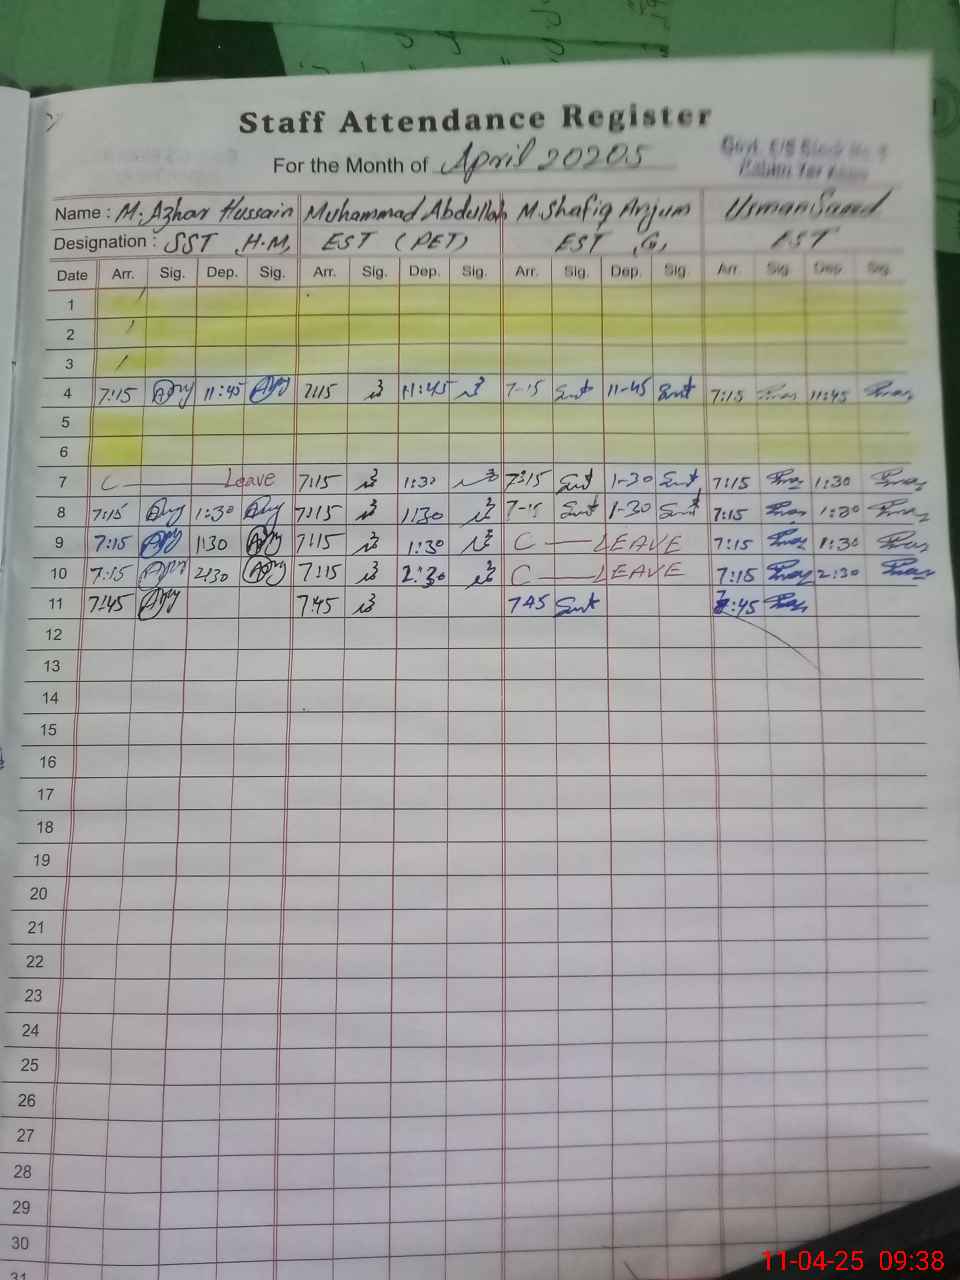 Staff Attendance Register
For the Month of April 20205
Govt. E/S Block No. 1
Rahim Yar Khan
Name : M. Azhar Hussain Muhammad Abdullah M. Shafiq Anjum Usman Saeed
Designation : SST H.M, EST (PET) EST G, EST
Date Arr. Sig. Dep. Sig. Arr. Sig. Dep. Sig. Arr. Sig. Dep. Sig. Arr. Sig. Dep. Sig.
1
2
3
4 7:15 11:45 7:15 11:45 7-15 11-45 7:15 11:45
5
6
7 C — Leave 7:15 1:30 7:15 1-30 7:15 1:30
8 7:15 1:30 7:15 1:30 7-15 1-30 7:15 1:30
9 7:15 1:30 7:15 1:30 C — LEAVE 7:15 1:30
10 7:15 2:30 7:15 2:30 C — LEAVE 7:15 2:30
11 7:45 7:45 745 7:45
12
13
14
15
16
17
18
19
20
21
22
23
24
25
26
27
28
29
30
31
11-04-25 09:38